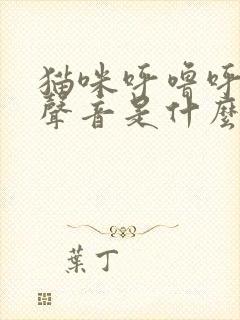 猫咪呼噜呼
聲音是什麼
葉丁